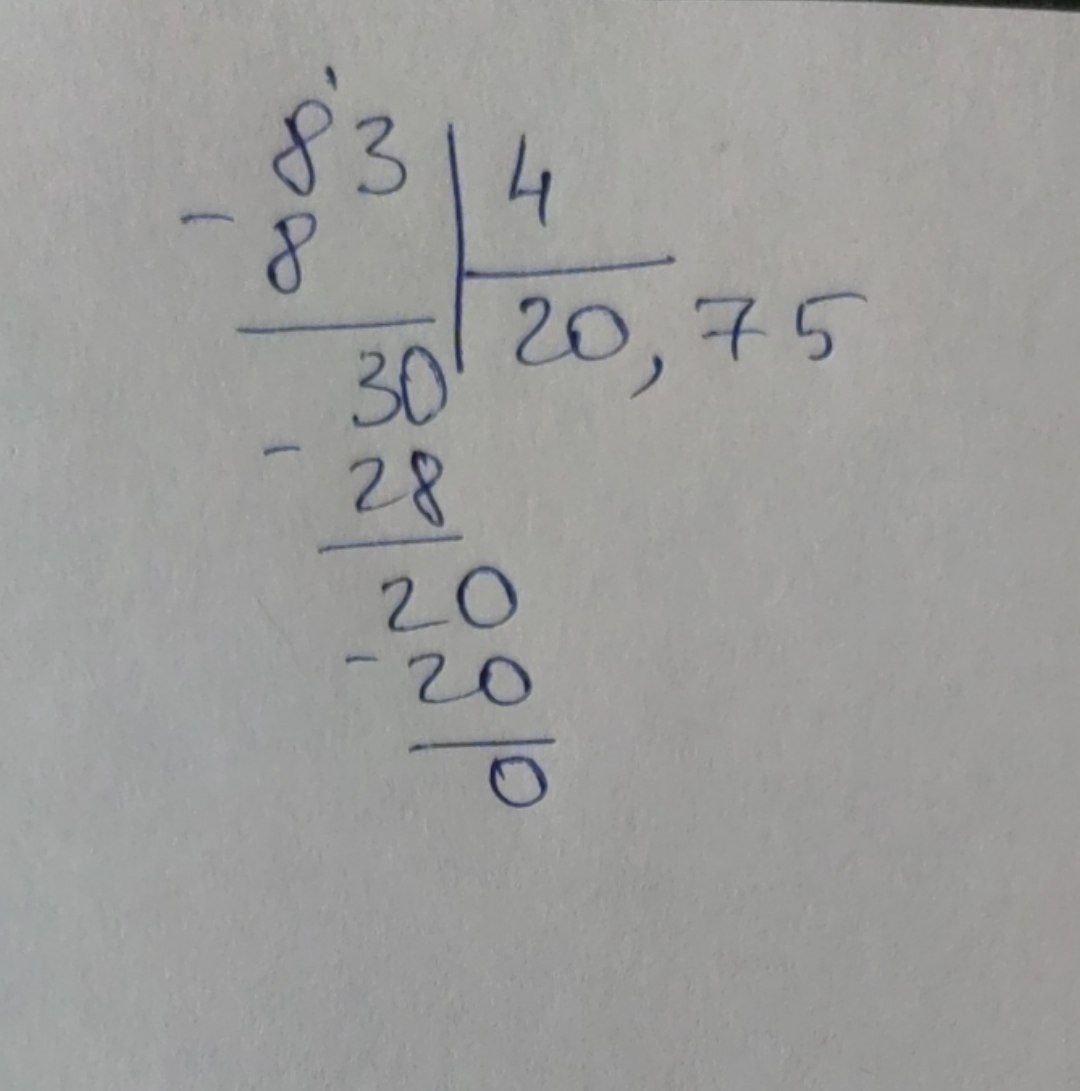 8'3 | 4
- 8
20,75
30
- 28
20
- 20
0